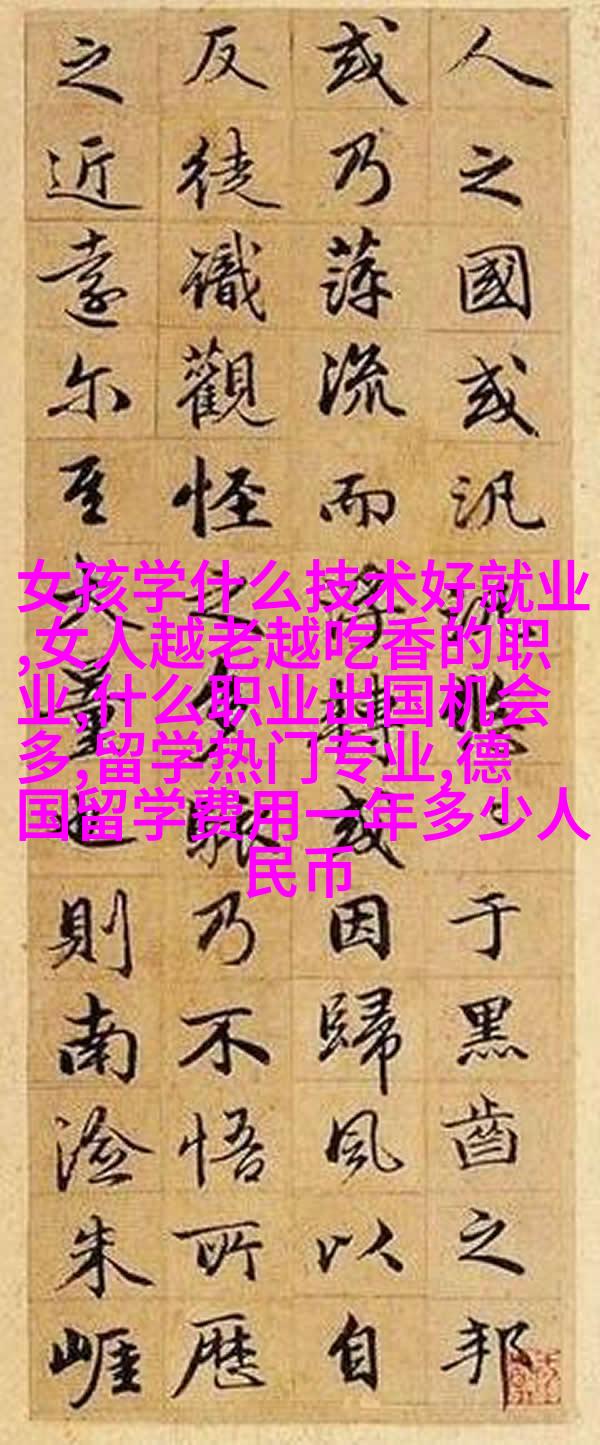 人之國或汎悠于黑齒之邦
或乃萍流而浮轉或因歸風以自
反徒識觀怪之多駭乃不悟所歷
之近遠尔至大量也則南澰朱崖
女孩学什么技术好就业
,女人越老越吃香的职
业,什么职业出国机会
多,留学热门专业,德
国留学费用一年多少人
民币